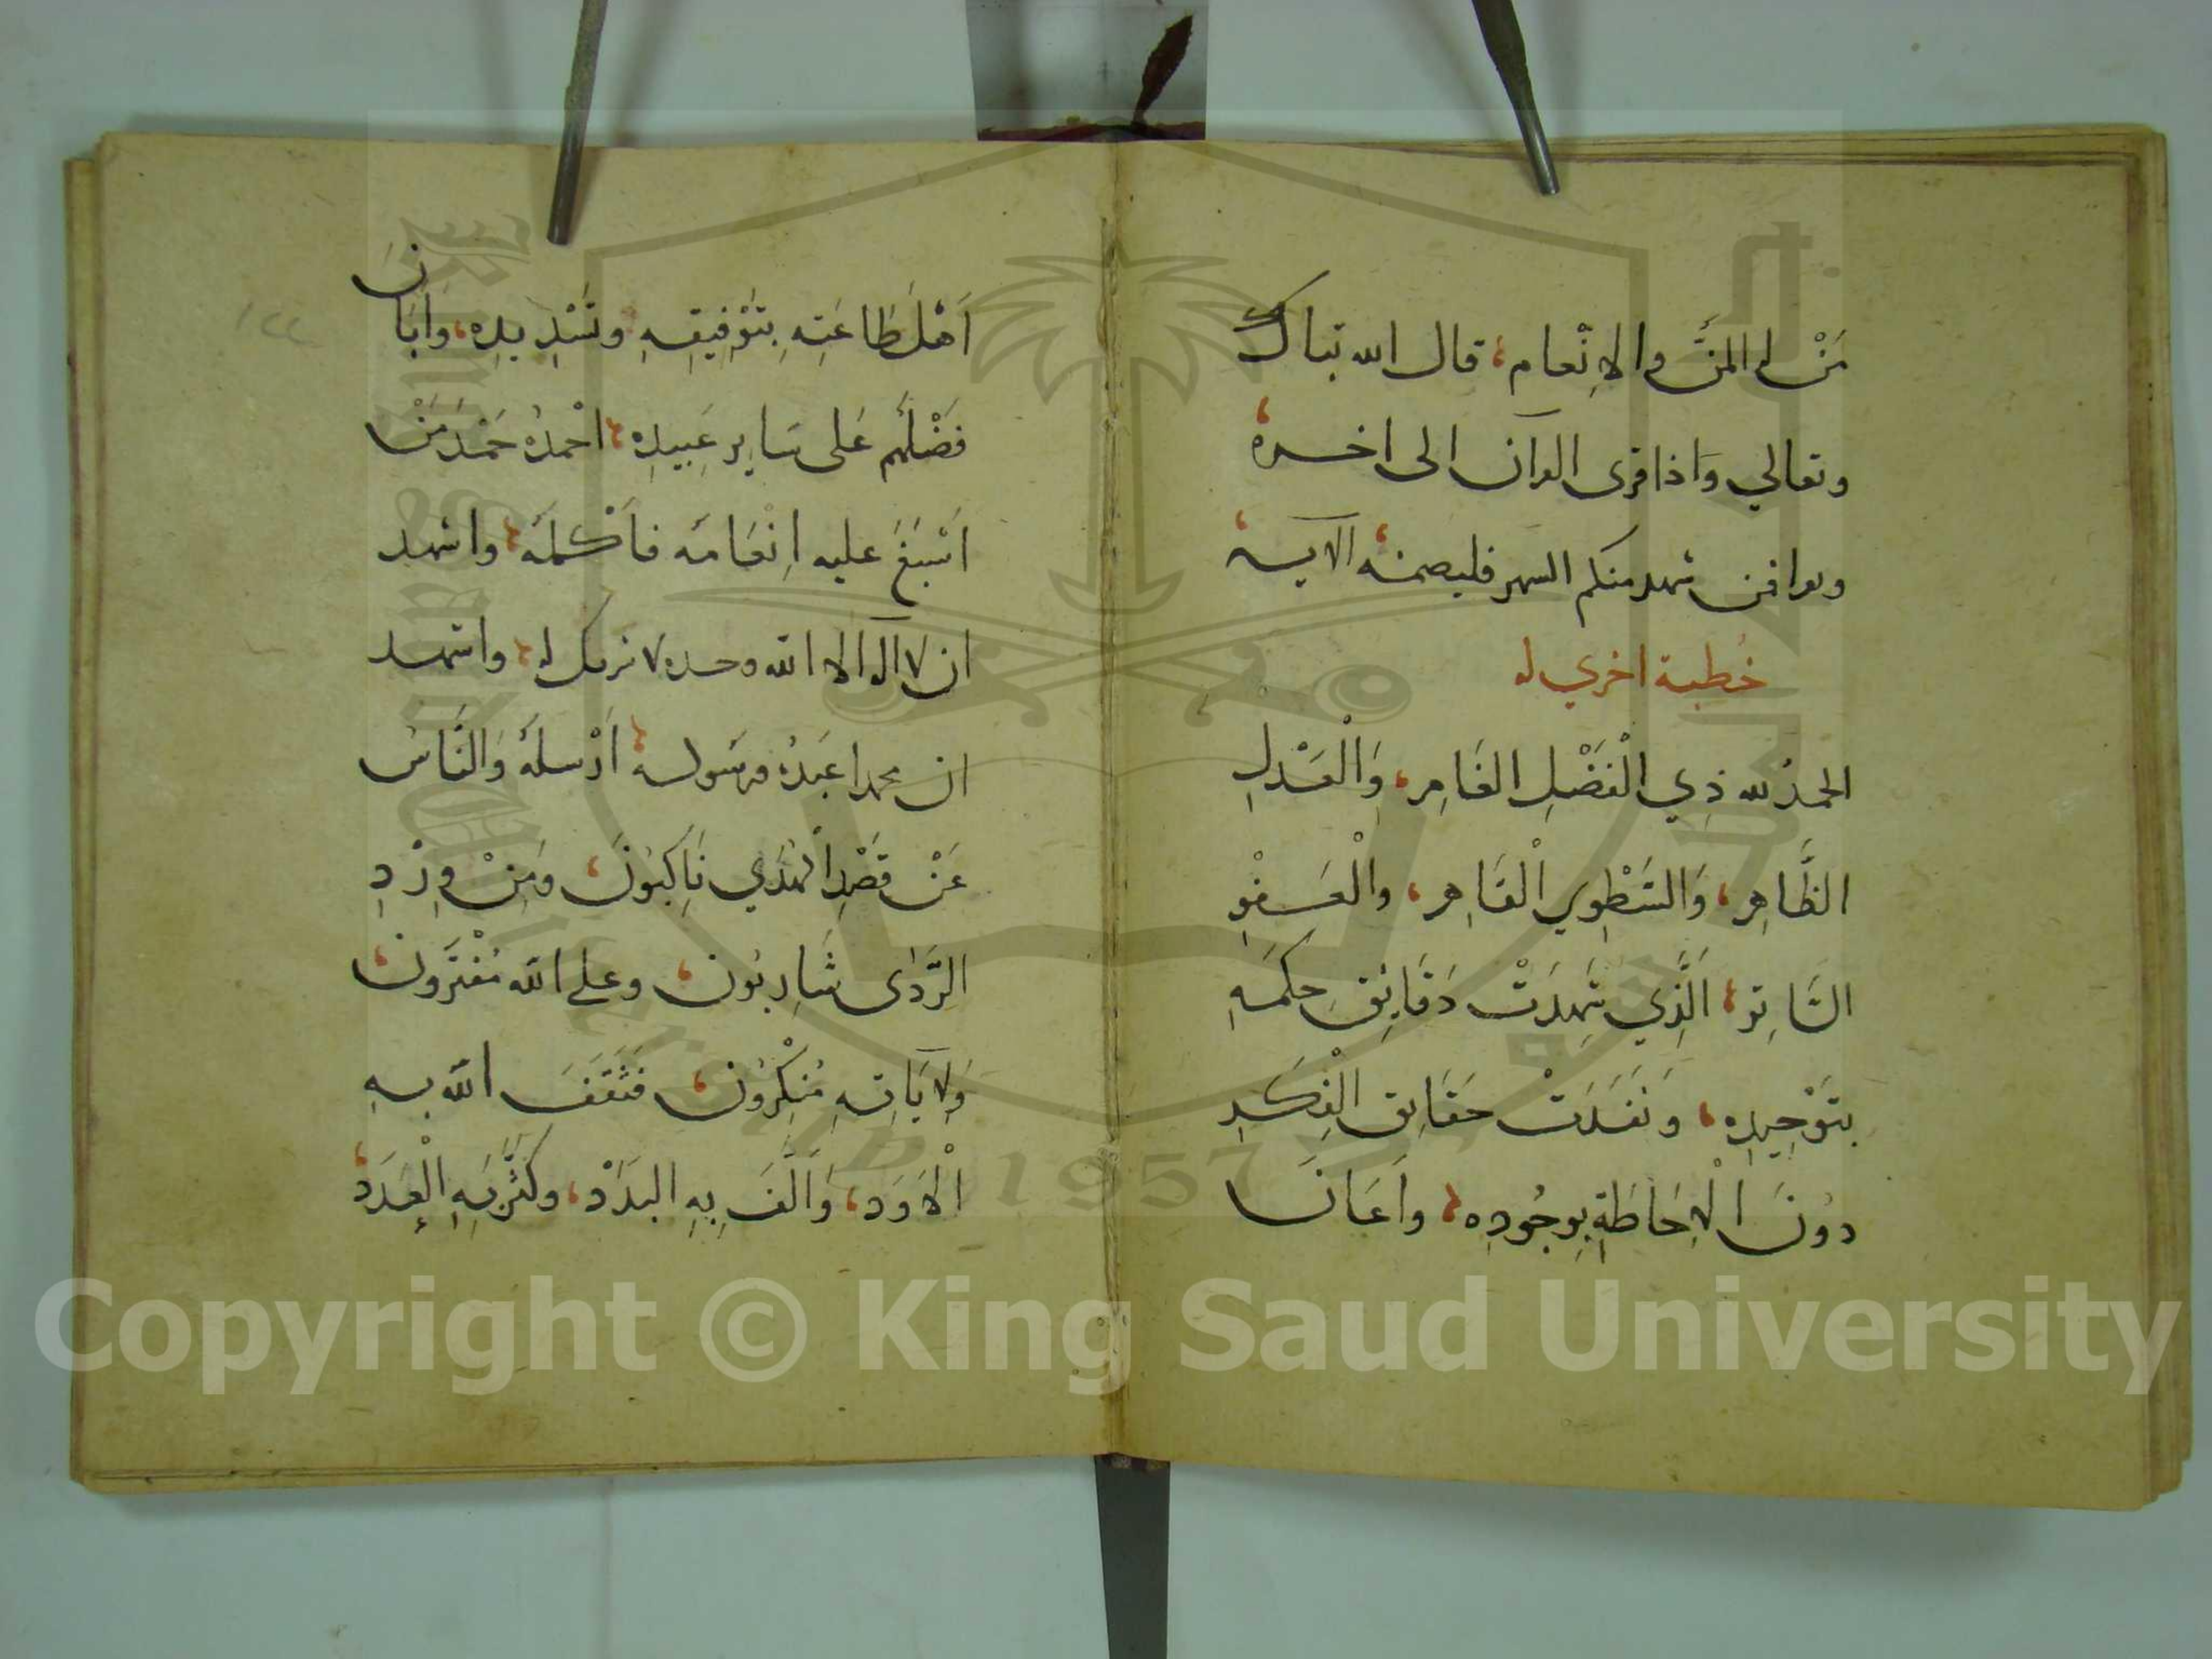 مَنْ له المَنُّ والاِنْعام، قال الله تباك
وتعالي وَاذا قرى القرآن الى اخره
ويقرا فمن شهد منكم الشهر فليصمه الآية
خُطبة اخري له
الحمدُ لله ذِي الْفَضْلِ الغَامِر، وَالْعَدْلِ
الظَّاهِر، وَالسَّطْوِي الْقَاهِر، والْعَفْوِ
السَّاتِر، اَلَّذِي شَهِدَتْ دَقَايِقُ حِكَمِهِ
بتَوْحِيدِه، وَنَفَدَتْ حَقَايِق الْفِكَرِ
دوُنَ الْاِحَاطَةِ بِوجُودِه، واَعَانَ
اَهْلَ طَاعَتِهِ بِتَوْفِيقِهِ وتَسْدِيدِه، وَاَبَانَ
فَضْلَهُم عَلى سَايِرِ عَبِيدِه، احْمدُهُ حَمْدَ مَنْ
اَسْبَغَ عليه اِنْعَامَه فاَكْملَهُ، واشهد
ان لا اله الا الله وحده لا شريك له، واشهد
ان محمدا عَبدُهُ ورَسَوله، اَرْسلَهُ وَالنَّاسُ
عَنْ قَصْدِ الْهُدَي نَاكِبُونَ، وَمِنْ وِرْدِ
الرَّدَاى شَارِبُون، وعلى الله مُفْتَرُون،
وَلاِيَاتِهِ مُنْكِرُون، فَثَقَفَ الله بهِ
الْاَوَد، وَاَلَّفَ بِهِ البَدَدْ، وكَثَّرَ بِهِ الْعَدَدْ،
١٢٢
Copyright © King Saud University
1957